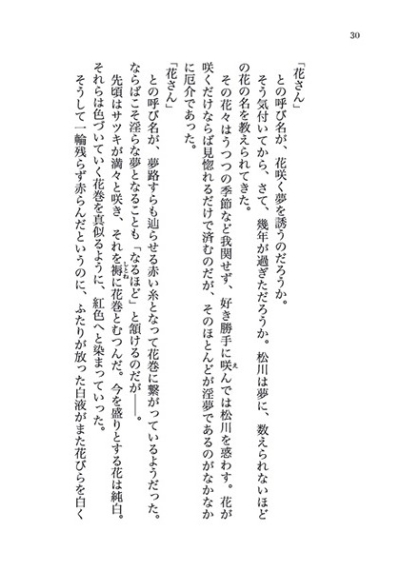 30
「花さん」
との呼び名が、花咲く夢を誘うのだろうか。
そう気付いてから、さて、幾年が過ぎただろうか。松川は夢に、数えられないほど
の花の名を教えられてきた。
その花々はうつつの季節など我関せず、好き勝手に咲んでは松川を惑わす。花が
咲くだけならば見惚れるだけで済むのだが、そのほとんどが淫夢であるのがなかなか
に厄介であった。
「花さん」
との呼び名が、夢路すらも辿らせる赤い糸となって花巻に繋がっているようだった。
ならばこそ淫らな夢となることも「なるほど」と頷けるのだが――。
先頃はサツキが満々と咲き、それを褥に花巻とむつんだ。今を盛りとする花は純白。
それらは色づいていく花巻を真似るように、紅色へと染まっていった。
そうして一輪残らず赤らんだというのに、ふたりが放った白液がまた花びらを白く